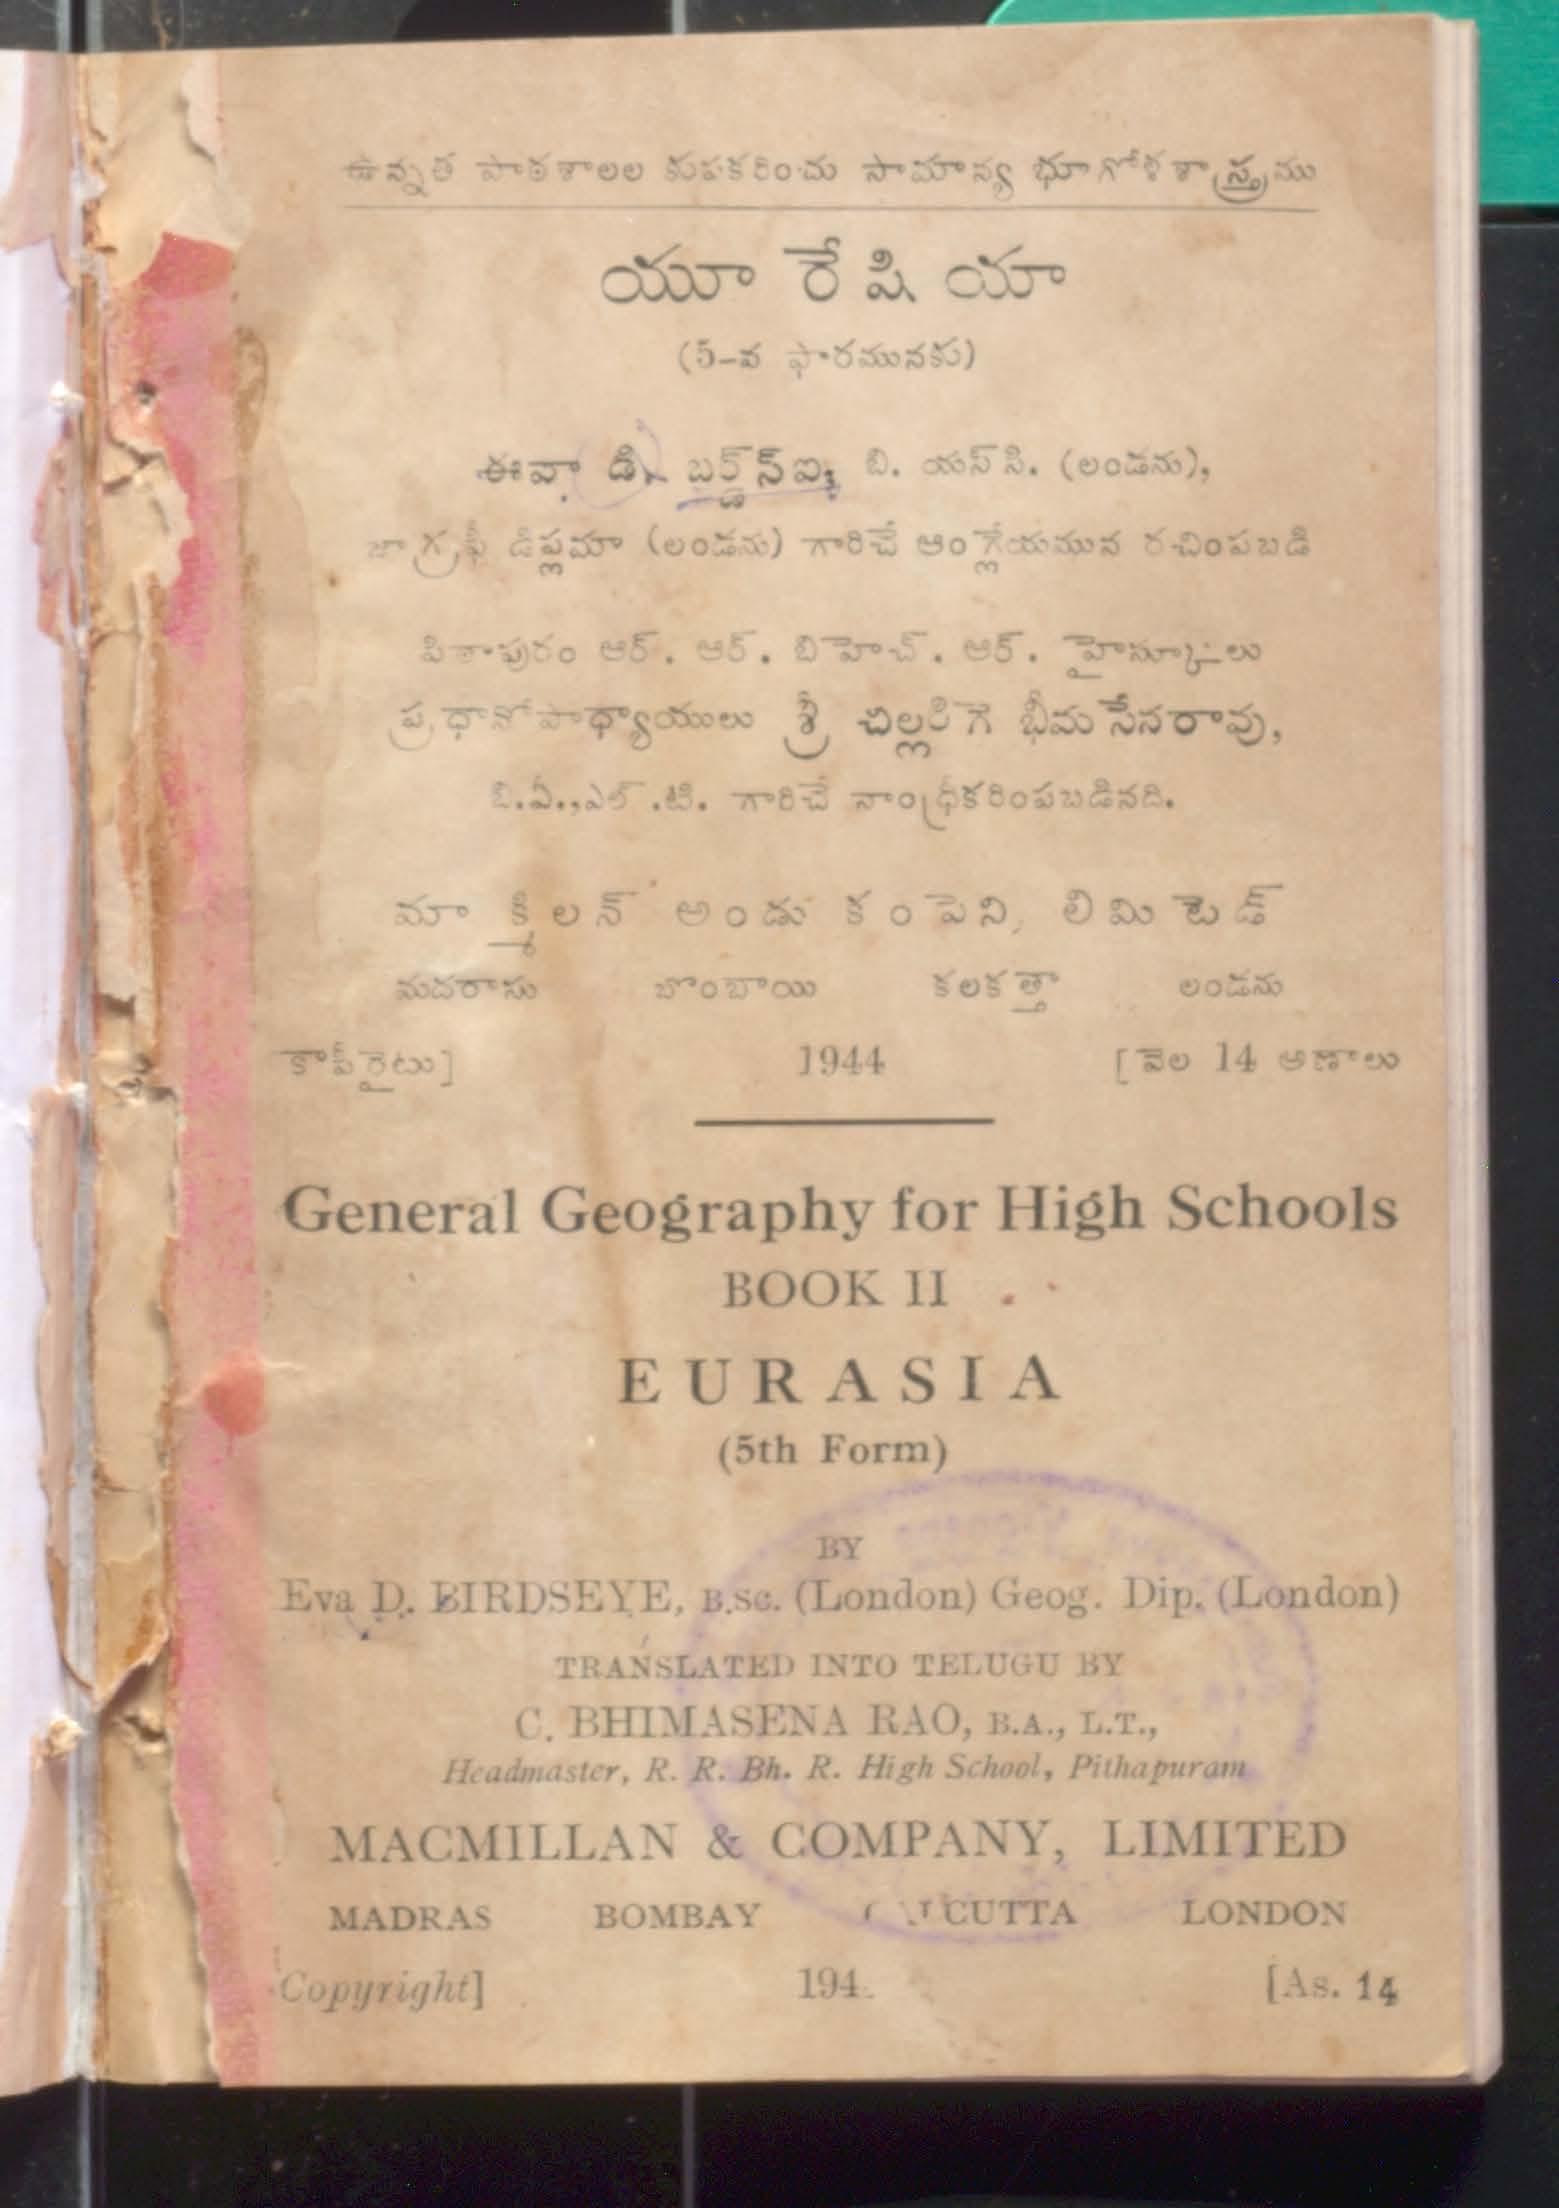 ఉన్నత పాఠశాలల కుపకరించు సామాన్య భూగోళశాస్త్రము
యూరేషియా
(5-వ ఫారమునకు)
ఈవా డి. బర్డ్స్ఐ, బి. యస్‌సి. (లండను),
జాగ్రఫీ డిప్లమా (లండను) గారిచే ఆంగ్లేయమున రచింపబడి
పిఠాపురం ఆర్. ఆర్. బిహెచ్. ఆర్. హైస్కూలు
ప్రధానోపాధ్యాయులు శ్రీ చిల్లరిగె భీమసేనరావు,
బి.ఏ.,ఎల్.టి. గారిచే నాంధ్రీకరింపబడినది.
మాక్మిలన్ అండు కంపెని, లిమిటెడ్
మదరాసు బొంబాయి కలకత్తా లండను
కాపీరైటు] 1944 [వెల 14 అణాలు
General Geography for High Schools
BOOK II
EURASIA
(5th Form)
BY
Eva D. BIRDSEYE, B.SC. (London) Geog. Dip. (London)
TRANSLATED INTO TELUGU BY
C. BHIMASENA RAO, B.A., L.T.,
Headmaster, R. R. Bh. R. High School, Pithapuram
MACMILLAN & COMPANY, LIMITED
MADRAS BOMBAY CALCUTTA LONDON
Copyright] 194 [As. 14